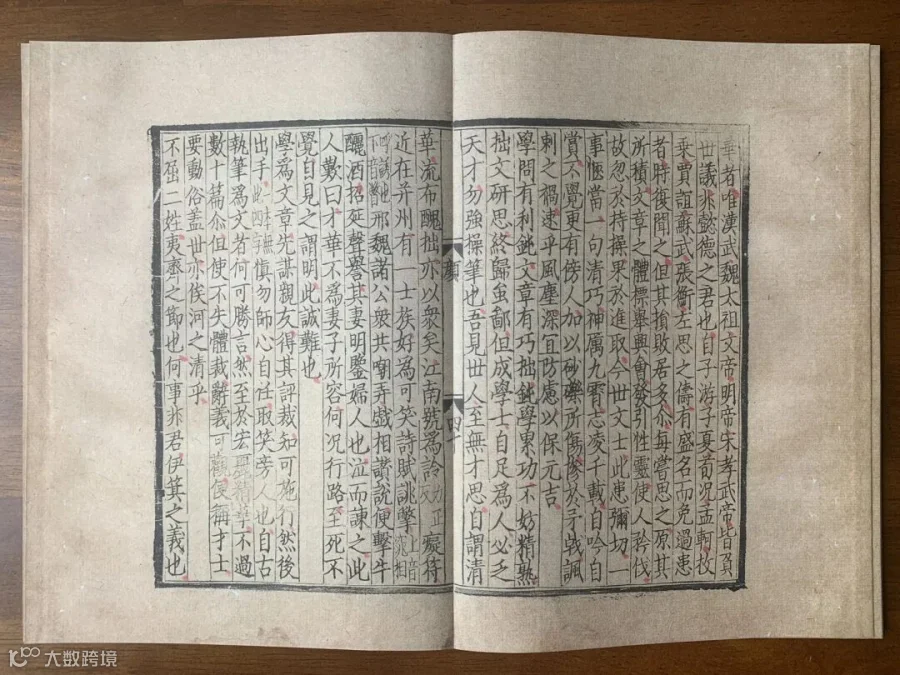 華者唯漢武魏太祖文帝明帝宋孝武帝皆負
世議非懿德之君也自子游子夏荀況孟軻枚
乘賈誼蘇武張衡左思之儔有盛名而免過患
者時復聞之但其損敗居多尒每嘗思之原其
所積文章之體標舉興會發引性靈使人矜伐
故忽於持操果於進取今世文士此患彌切一
事愜當一句清巧神厲九霄志凌千載自吟自
賞不覺更有傍人加以砂礫所傷慘於矛戟諷
刺之禍速乎風塵深宜防慮以保元吉
學問有利鈍文章有巧拙鈍學累功不妨精熟
拙文研思終歸蚩鄙但成學士自足為人必乏
天才勿強操筆也吾見世人至無才思自謂清
四
華流布醜拙亦以衆矣江南號為詅力正反癡符
近在并州有一士族好為可笑詩賦誂擎上音窕相
呼誘也下音瞥邢魏諸公衆共嘲弄戲相讚說便擊牛
釃酒招延聲譽其妻明鑒婦人也泣而諫之此
人歎曰才華不為妻子所容何況行路至死不
覺自見之謂明此誠難也
學為文章先謀親友得其評裁知可施行然後
出手一本無此四字慎勿師心自任取笑旁人也自古
執筆為文者何可勝言然至於宏麗精華不過
數十篇尒但使不失體裁辭義可觀便稱才士
要動俗蓋世亦俟河之清乎
不屈二姓夷齊之節也何事非君伊箕之義也
大数跨境